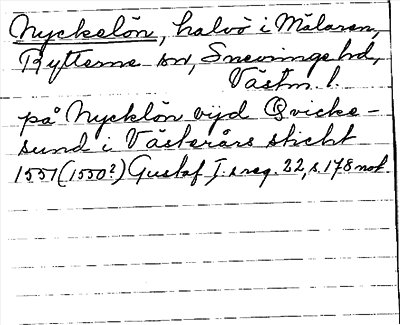 Nyckelön, halvö i Mälaren,
Rytterne sn, Snevringe hd,
Västm. l.
på Nycklön vijd Qvicke-
sund i Västerårs sticht
1551 (1550?) Gustaf I:s reg. 22, s. 178 not.